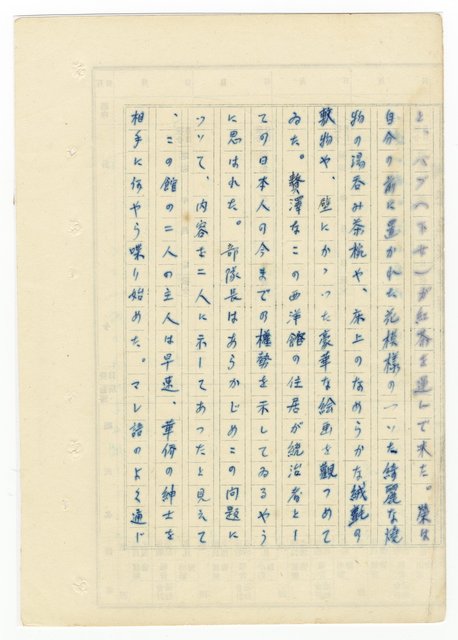 と、バブ(下女)が紅茶を運んで来た。榮は
自分の前に置かれた花模様のついた綺麗な焼
物の湯呑み茶椀や、床上のなめらかな絨氈の
敷物や、壁にかゝった豪華な絵画を觀つめて
ゐた。贅澤なこの西洋館の住居が統治者とし
ての日本人の今までの權勢を示してゐるやう
に思はれた。部隊長はあらかじめこの問題に
ついて、内容を二人に示してあったと見えて
、この館の二人の主人は早速、華僑の紳士を
相手に何やら喋り始めた。マレ語のよく通じ